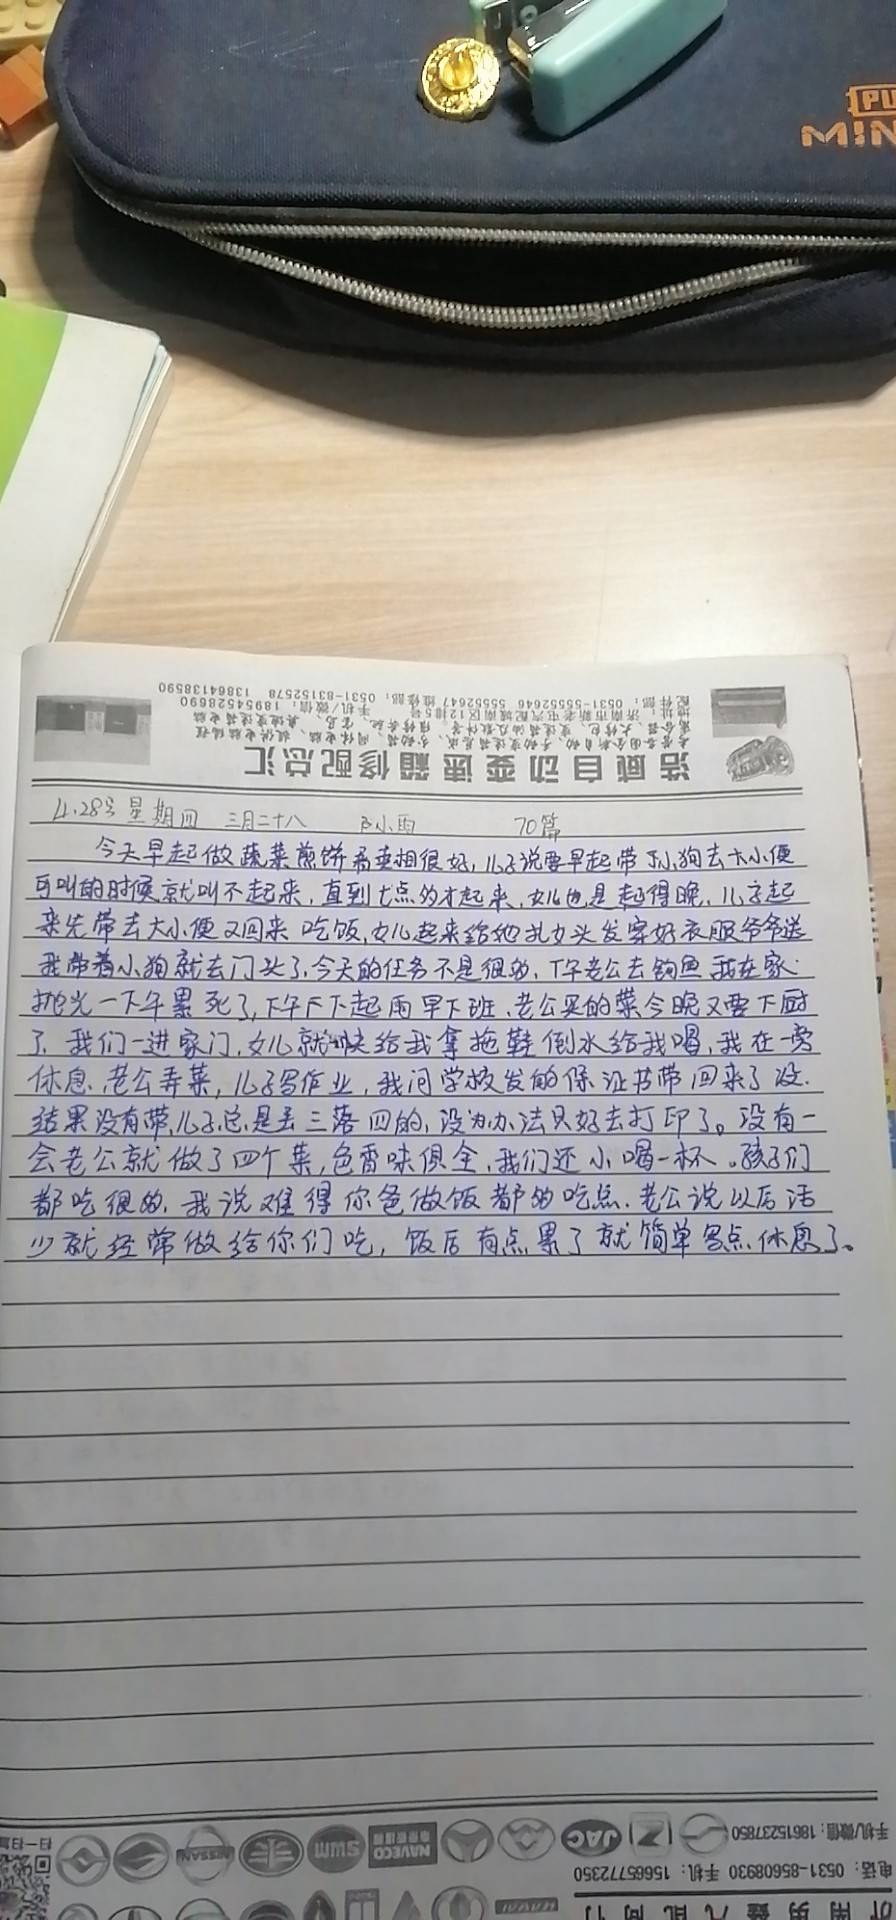 PU
MIN
浩威自动变速箱修配总汇
地址：济南市新老屯汽配城南区12排5号
手机/微信：18954528690 13864138590
配件部：0531-55552646 55552647 维修部：0531-83152578
4.28号 星期四 三月二十八 小雨 70篇
今天早起做蔬菜煎饼看卖相很好，儿子说要早起带小狗去大小便
可叫的时候就叫不起来，直到七点多才起来，女儿也是起得晚，儿子起
来先带去大小便又回来吃饭，女儿起来给她扎女头发穿好衣服爷爷送
我带着小狗就去门头了，今天的任务不是很多，下午老公去钓鱼我在家
抛光一下午累死了，下午下起雨早下班，老公买的菜今晚又要下厨
了，我们一进家门，女儿就快给我拿拖鞋倒水给我喝，我在一旁
休息，老公弄菜，儿子写作业，我问学校发的保证书带回来了没，
结果没有带，儿子总是丢三落四的，没办法只好去打印了。没有一
会老公就做了四个菜，色香味俱全，我们还小喝一杯。孩子们
都吃很多，我说难得你爸做饭都多吃点，老公说以后活
少就经常做给你们吃，饭后有点累了就简单写点休息了。
手机/微信：18615237850
电话：0531-85608930 手机：15665772350
JAC
NAVECO
SWM
NISSAN
扫一扫